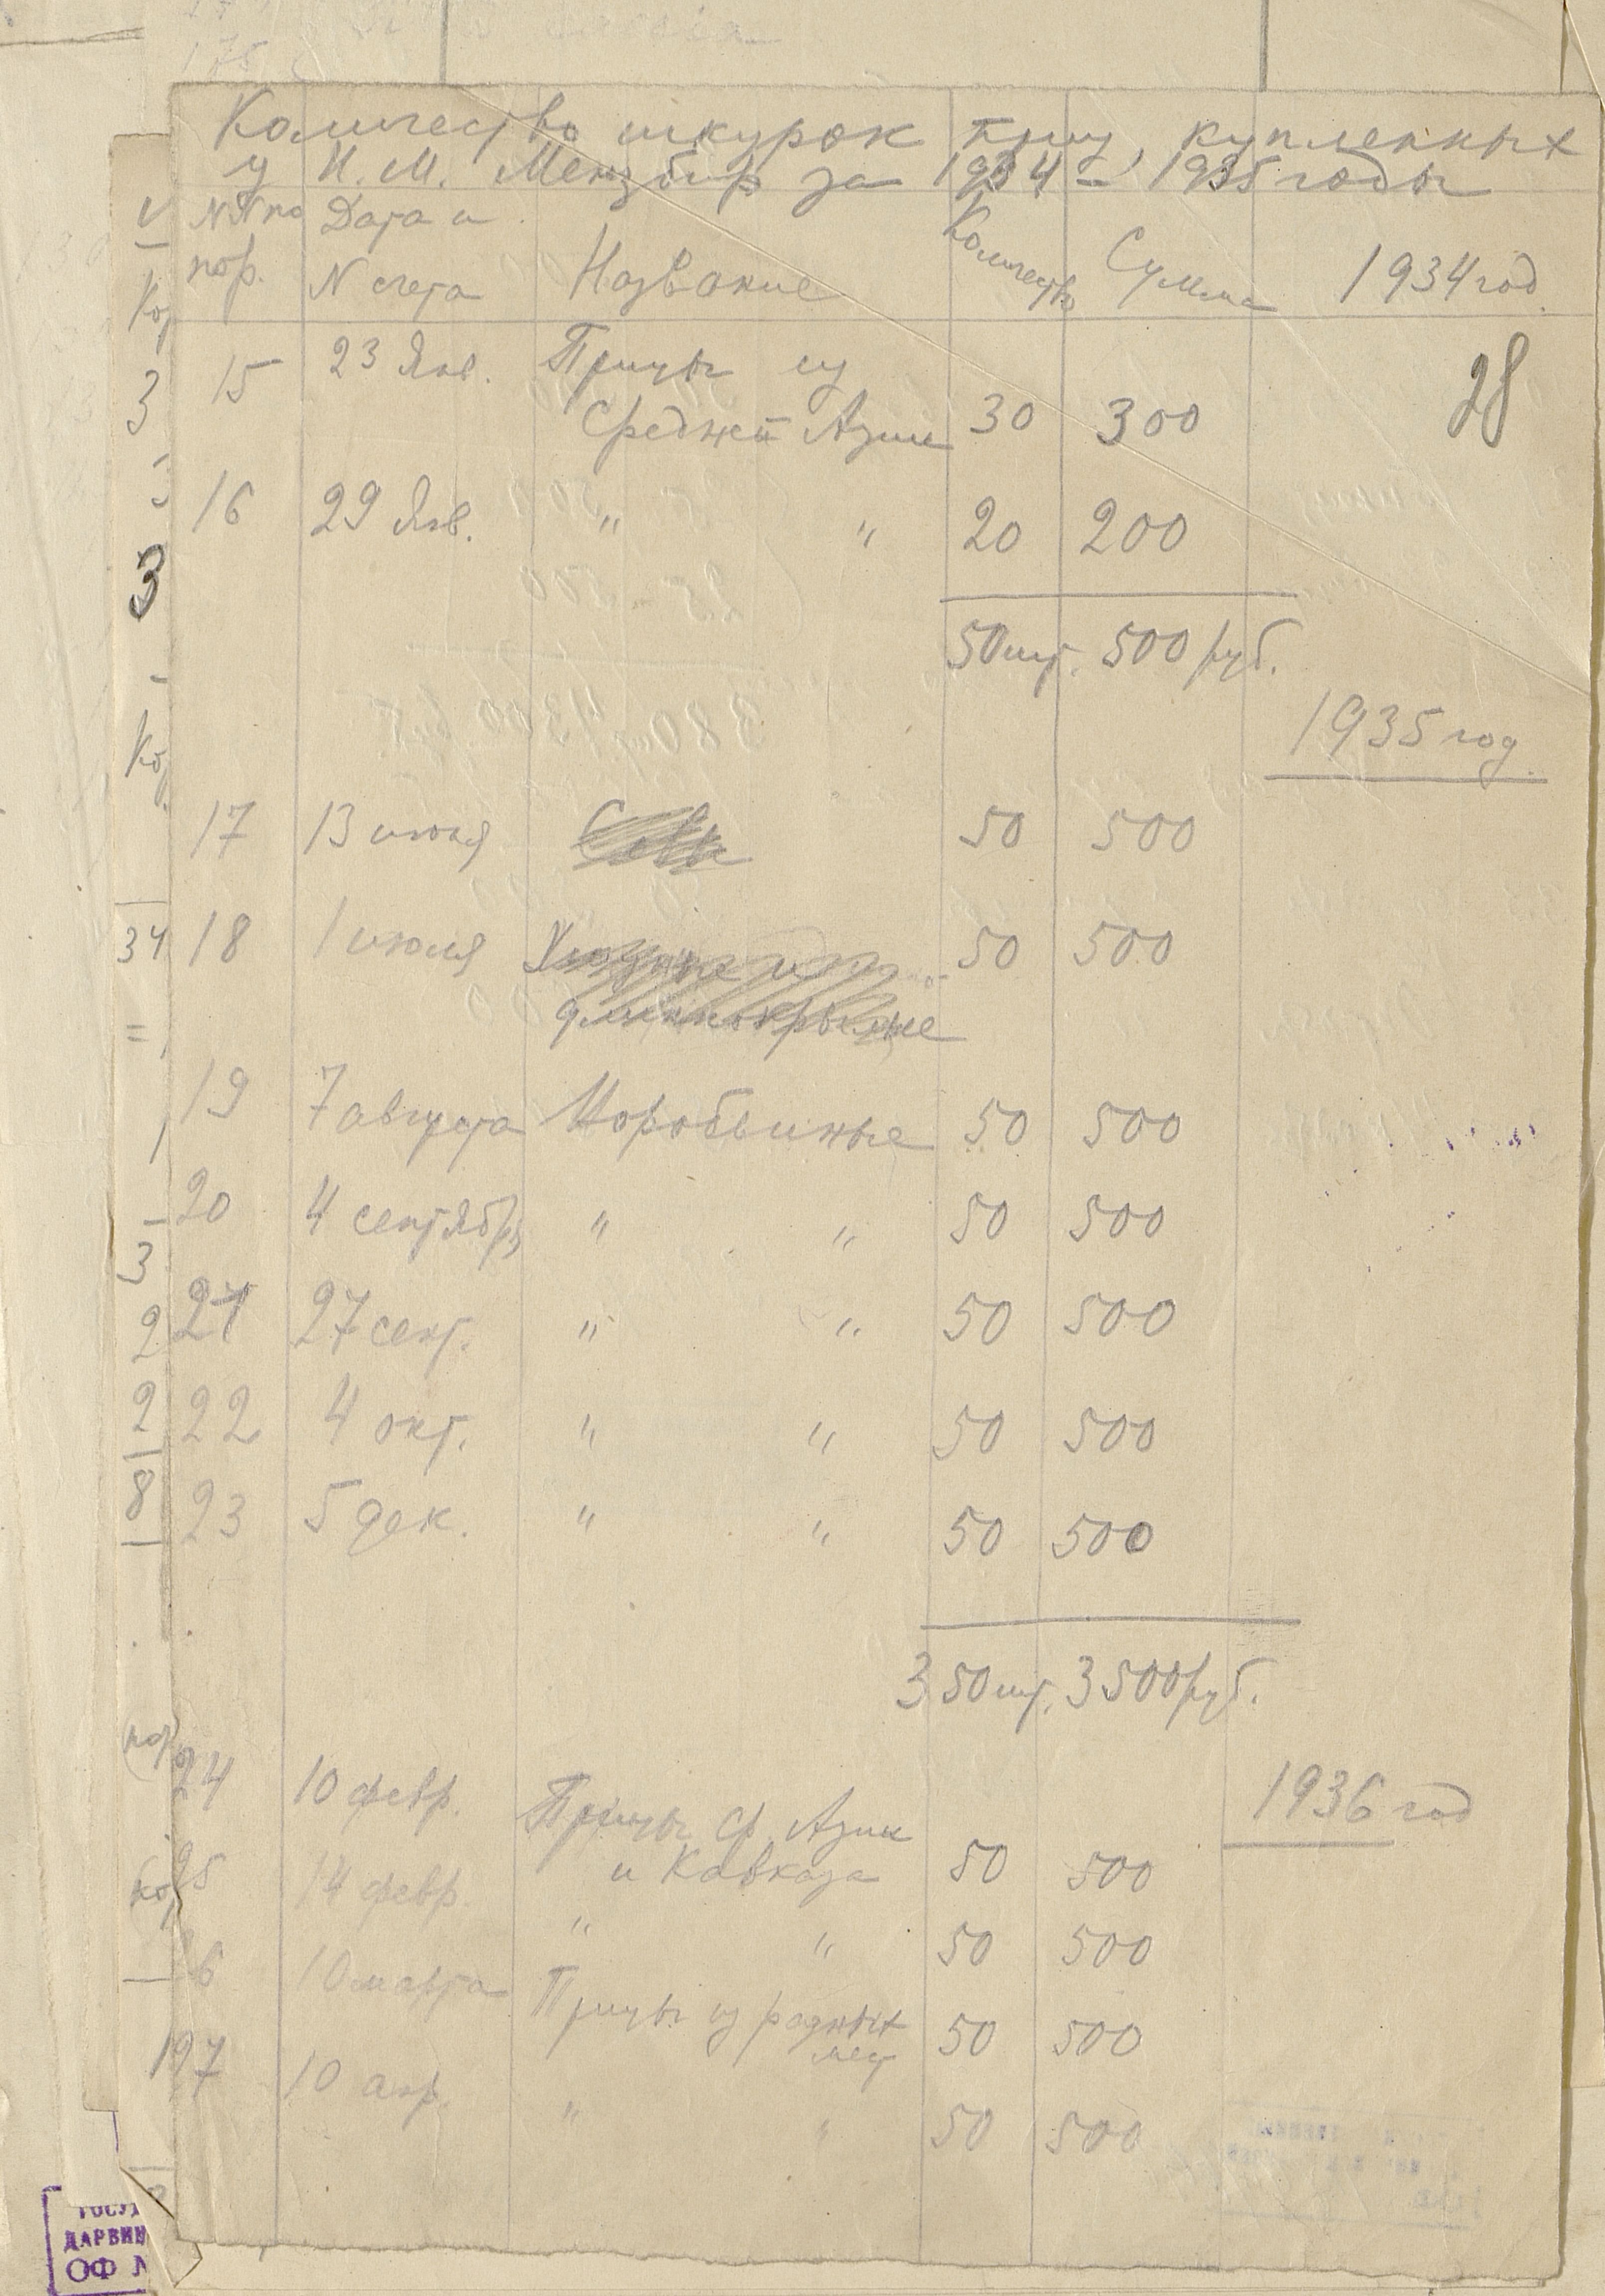 Количество шкурок птиц, купленных
у И. М. Мензбир за 1934 – 1935 годы
NN по пор. Дата и N счета Название Количество Сумма 1934 год
28
15 23 Янв. Птицы из
Средней Азии 30 300
16 29 Янв. " " 20 200
50 шт. 500 руб.
1935 год
17 13 июня 50 500
18 1 июля 50 500
длиннокрылые
19 7 августа Воробьиные 50 500
20 4 сентября " " 50 500
21 27 сент. " " 50 500
22 4 окт. " " 50 500
23 5 дек. " " 50 500
350 шт. 3500 руб.
1936 год
24 10 февр. Птицы Ср. Азии
и Кавказа 50 500
25 14 февр. " " 50 500
26 10 марта Птицы из разных
мест 50 500
27 10 апр. " " 50 500
ДАРВИН
ОФ